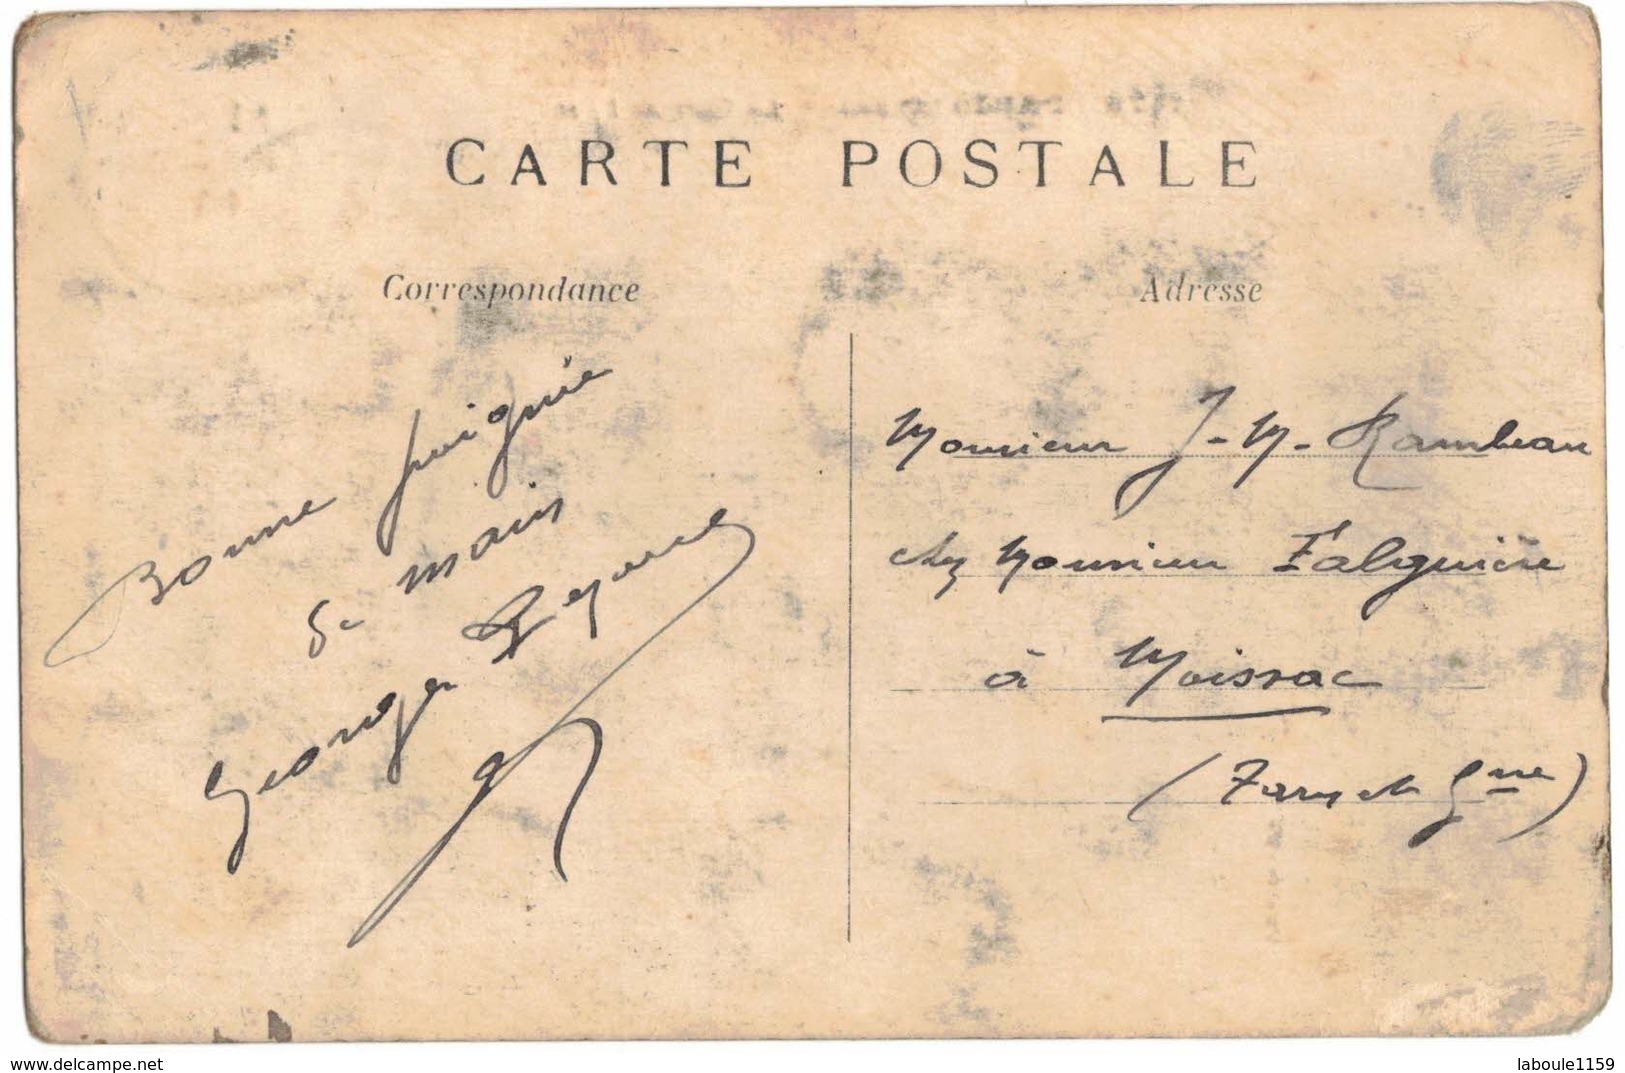 CARTE POSTALE
Correspondance
Bonne poignée
de mains
Georges
Adresse
Monsieur J-M. Rambeau
chez Monsieur Falguière
à Moissac
(Tarn et Gne)
delcampe.net
laboule1159